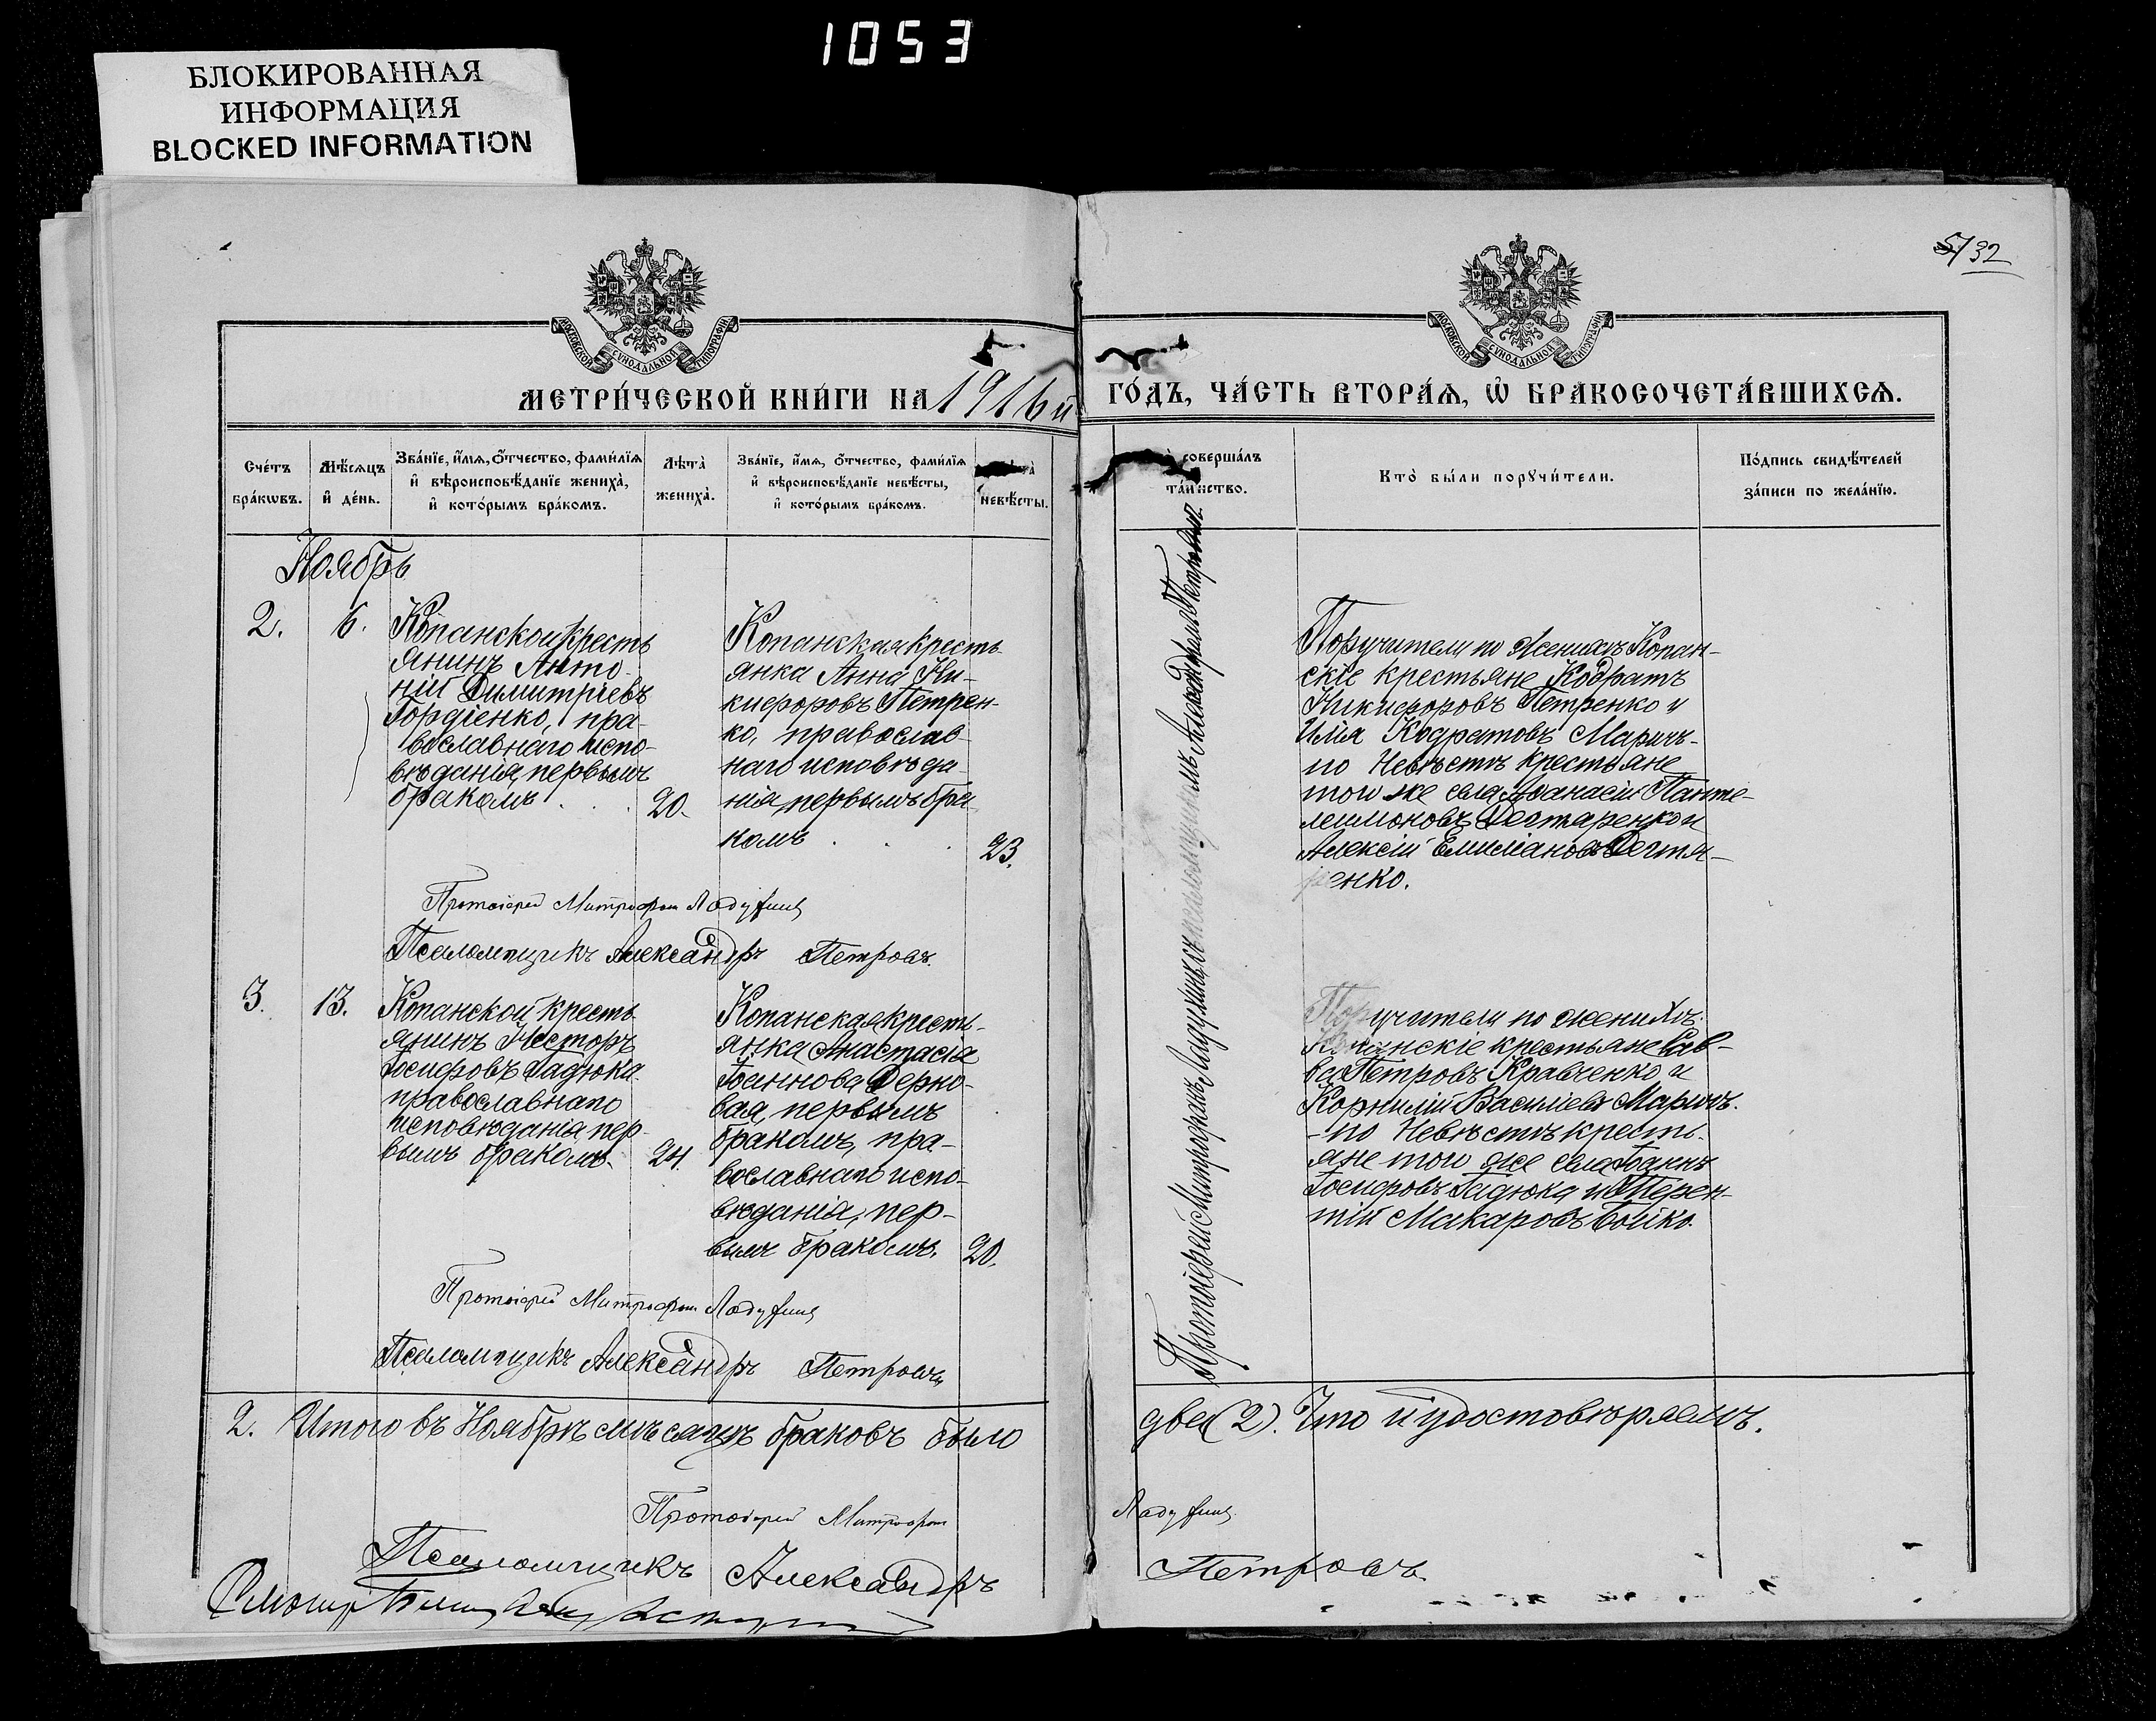 1053
БЛОКИРОВАННАЯ
ИНФОРМАЦИЯ
BLOCKED INFORMATION
32
МОСКОВСКОЙ СѴНОДАЛЬНОЙ ТИПОГРАФІИ
МОСКОВСКОЙ СѴНОДАЛЬНОЙ ТИПОГРАФІИ
МЕТРИ́ЧЕСКОЙ КНИ́ГИ НА 1916й ГО́ДЪ, ЧА́СТЬ ВТОРА́Ѧ, Ѽ БРАКОСОЧЕТА́ВШИХСѦ.
Сче́тъ
бра́кѡвъ.
Мѣ́сѧцъ
и҆ де́нь.
Зва́нїе, и҆́мѧ, ѻ҆́тчество, фами́лїѧ
и҆ вѣроисповѣ́данїе жениха̀,
и҆ кото́рымъ бра́комъ.
Лѣ́та̀
жениха̀.
Зва́нїе, и҆́мѧ, ѻ҆́тчество, фами́лїѧ
и҆ вѣроисповѣ́данїе невѣ́сты,
и҆ кото́рымъ бра́комъ.
невѣ́сты.
соверша́лъ
та́инство.
Кто̀ бы́ли порꙋчи́тели.
По́дпись свидѣ́телей
за́писи по жела́нїю.
Ноябрь
2.
6.
Копанской кресть
янинъ Анто-
ній Димитріевъ
Гордіенко, пра-
вославнаго испо-
вѣданія, первымъ
бракомъ
20.
Копанская кресть-
янка Анна Ни-
кифоровъ Петрен-
ко, православ-
наго исповѣда-
нія, первымъ бра-
комъ
23.
Протоіерей Митрофанъ Ладухинъ съ псаломщикомъ Александромъ Петровымъ
Поручители по Женихѣ Копан-
скіе крестьяне Кодратъ
Никифоровъ Петренко и
Илія Кодратовъ Маричъ-
по Невѣстѣ крестьяне
той же села Аѳанасій Панте-
леимоновъ Дегтяренко и
Алексій Емиліановъ Дегтя-
ренко.
Протоіерей Митрофан Ладухин
Псаломщикъ Александръ Петровъ.
3.
13.
Копанской кресть
янинъ Несторъ
Іосифовъ Гадюка
православнаго
исповѣданія, пер-
вымъ бракомъ.
24.
Копанская кресть-
янка Анастасія
Іоаннова Дерко-
вая, первымъ
бракомъ, пра-
вославнаго испо-
вѣданія, пер-
вымъ бракомъ.
20.
Поручители по женихѣ.
Копанскіе крестьяне Сав-
ва Петровъ Кравченко и
Корнилій Василіевъ Маричъ.
- по Невѣстѣ кресть-
яне той же села Іоаннъ
Іосифовъ Гадюка и Терен-
тій Макаровъ Бойко.
Протоіерей Митрофан Ладухин
Псаломщикъ Александръ Петровъ
2. Итого въ Ноябрѣ мѣсяцѣ браковъ было два (2). Что и удостовѣряемъ.
Протоіерей Митрофан Ладухин
Псаломщикъ Александръ Петровъ.